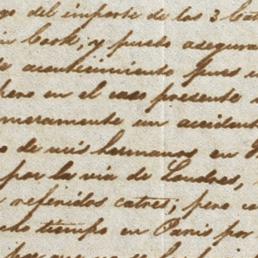 go del importe de los 3 Cat
in Cook; y puedo asegura
te acontecimiento pues u
pero en el caso presente
meramente un accident
o de mis hermanos en
por la via de Londres,
s referidos catres; pero co
cho tiempo en Paris por